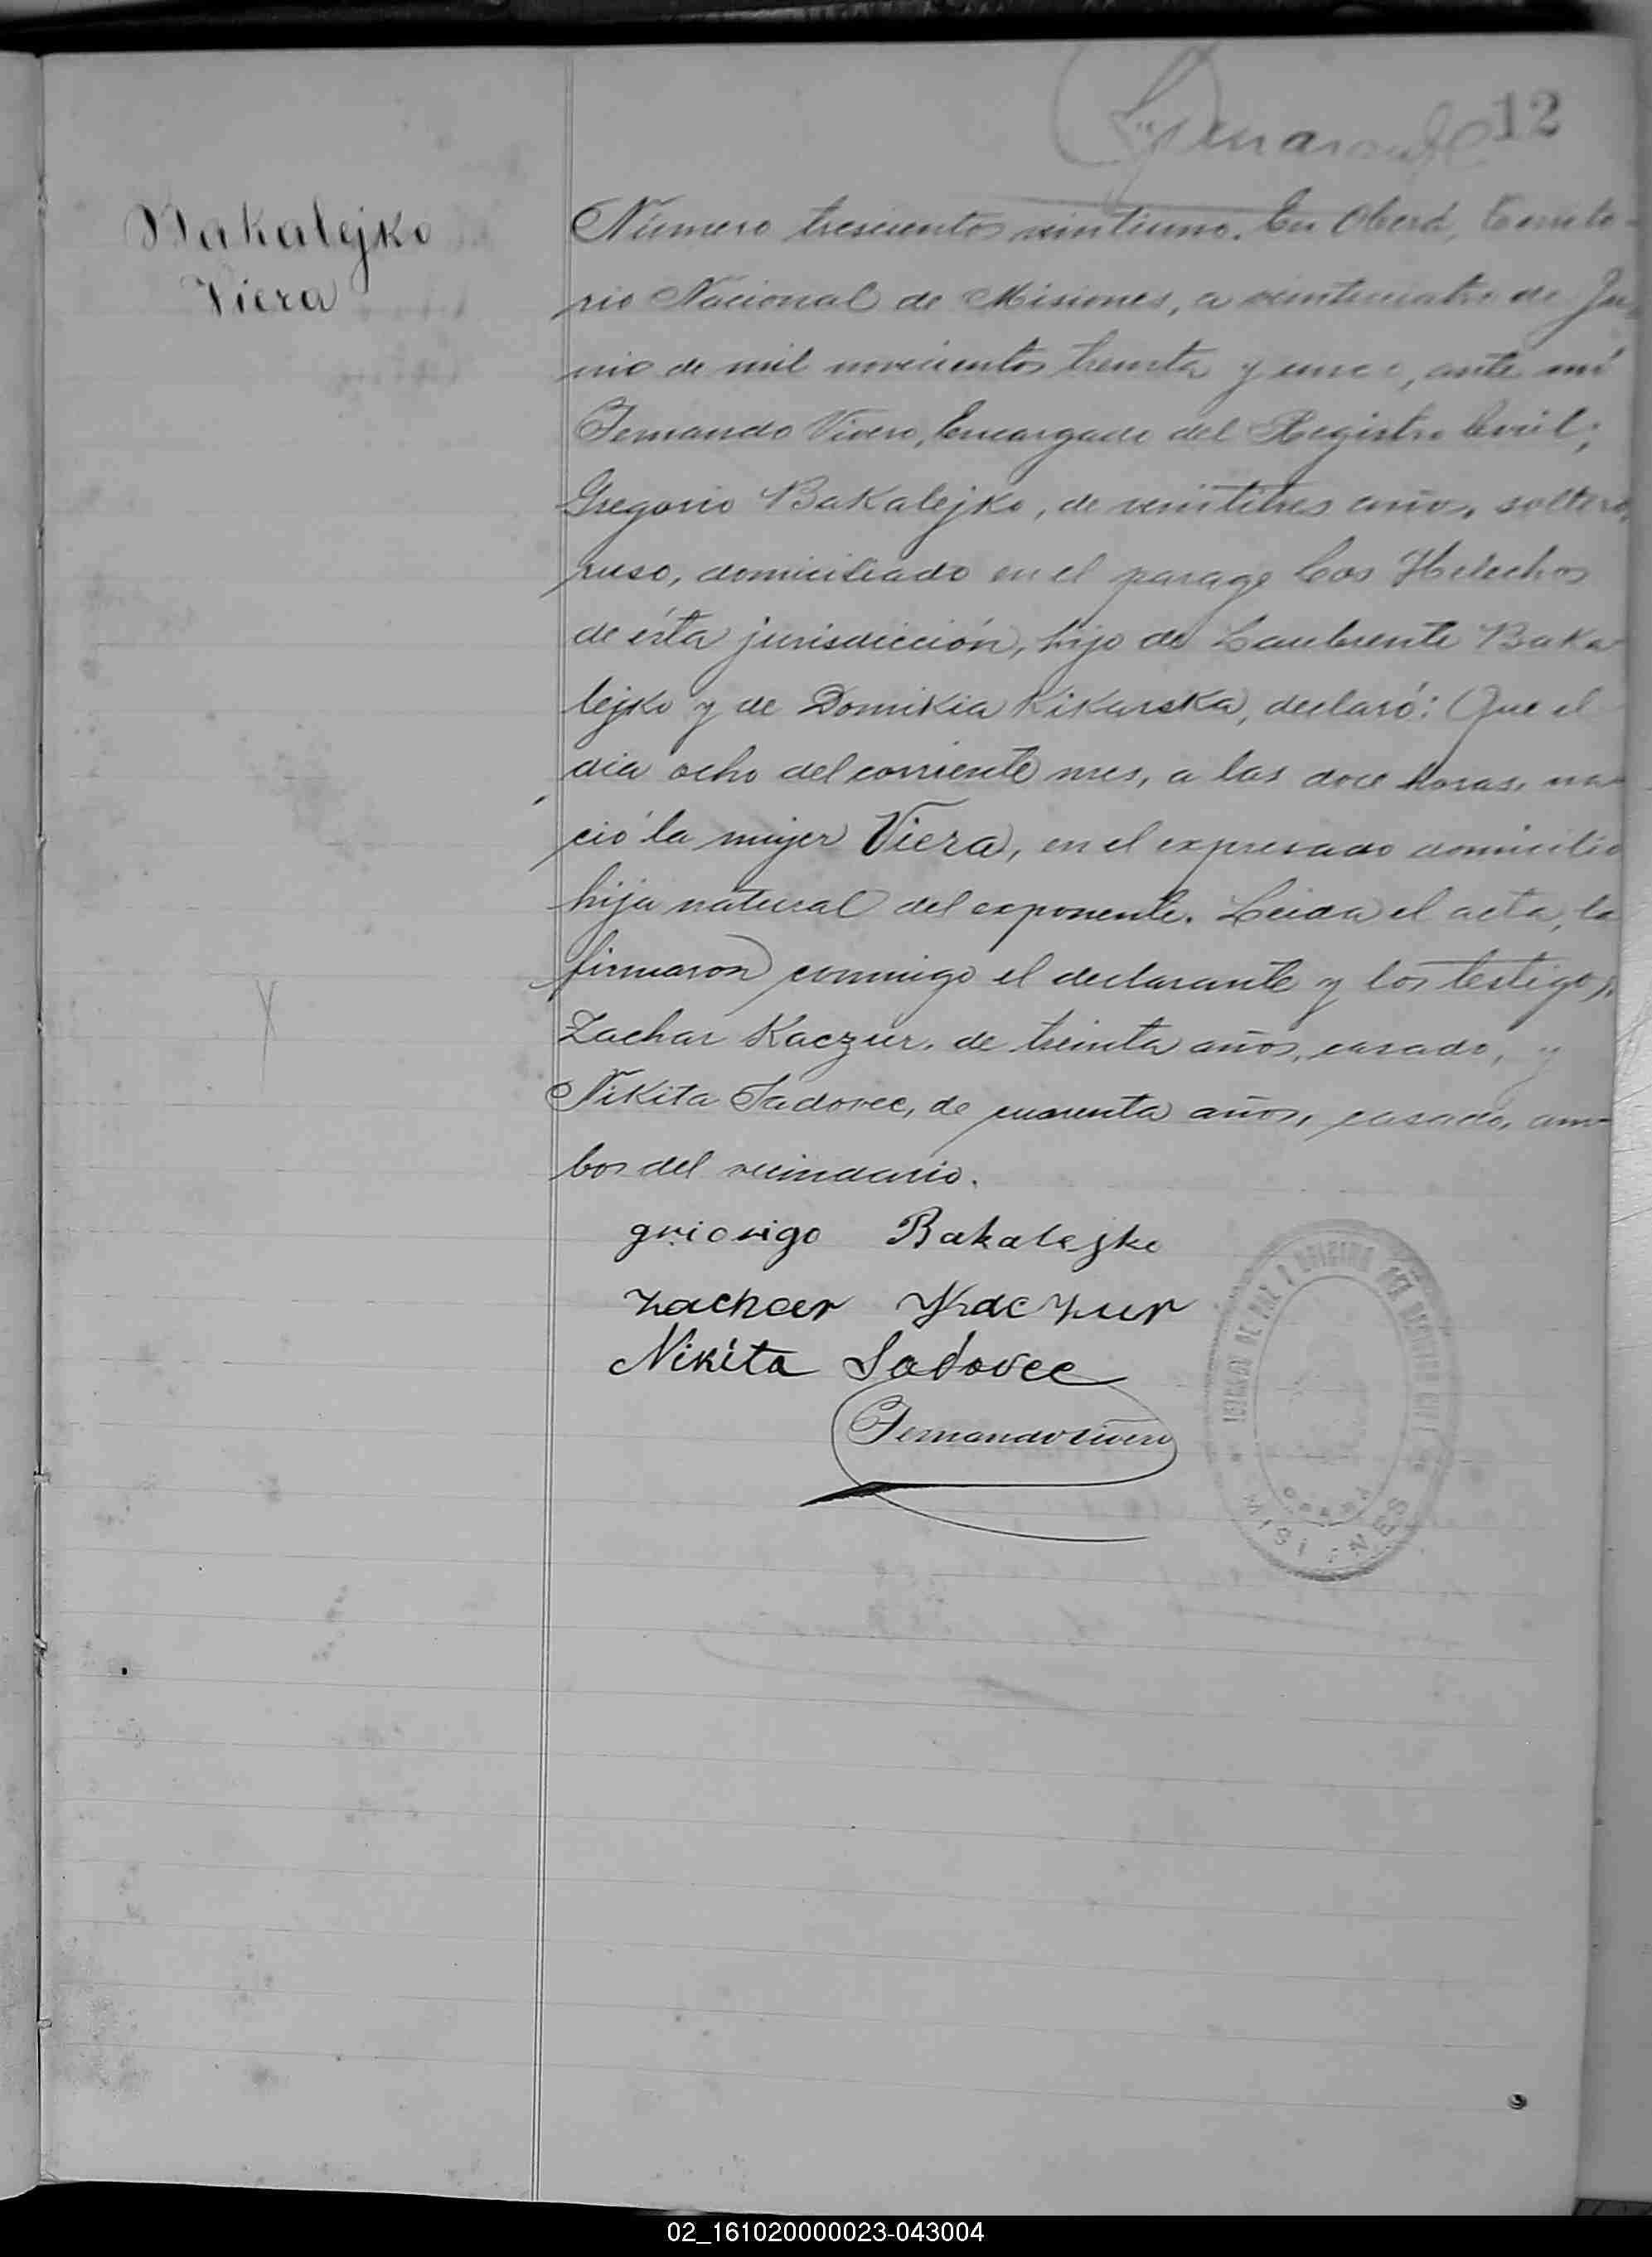 12
Bakalejko
Viera
Número trescientos veintiuno. En Oberá, Territo-
rio Nacional de Misiones, a veinticuatro de Ju-
nio de mil novecientos treinta y uno, ante mí
Fernando Vivero, Encargado del Registro Civil;
Gregorio Bakalejko, de veintitres años, soltero,
ruso, domiciliado en el parage Los Helechos
de ésta jurisdicción, hijo de Laubrente Baka-
lejko y de Domikia Kikarska, declaró: Que el
dia ocho del corriente mes, a las doce horas, na-
ció la mujer Viera, en el expresado domicilio
hija natural del exponente. Leida el acta, la
firmaron conmigo el declarante y los testigos.
Zachar Kaczur, de treinta años, casado, y
Nikita Sadovec, de cuarenta años, casado, am-
bos del vecindario.
griorigo Bakalejko
Zachar Kaczur
Nikita Sadovec
Fernando Vivero
JUZGADO DE PAZ Y OFICINA DEL REGISTRO CIVIL
OBERÁ
MISIONES
02_161020000023-043004